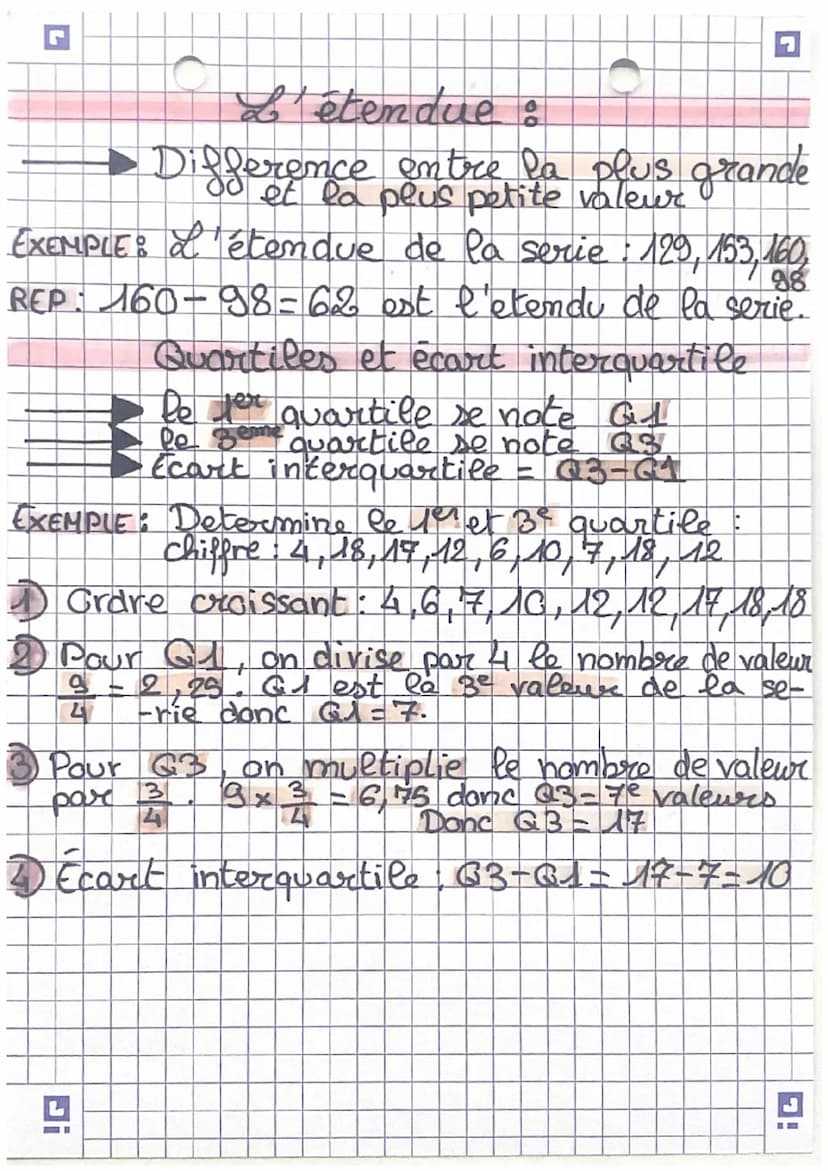 L'étendue :
Différence entre la plus grande
et la plus petite valeur
EXEMPLE : L'étendue de la serie : 129, 153, 160,
98
REP : 160 - 98 = 62 est l'etendu de la serie.
Quartiles et écart interquartile
le 1er quartile se note Q1
le 3eme quartile se note Q3
Écart interquartile = Q3-Q1
EXEMPLE : Determine le 1er et 3e quartile :
chiffre : 4, 18, 17, 12, 6, 10, 7, 18, 12
1 Ordre croissant : 4, 6, 7, 10, 12, 12, 17, 18, 18
2 Pour Q1, on divise par 4 le nombre de valeur
9/4 = 2,25. Q1 est la 3e valeur de la se-
-rie donc Q1 = 7.
3 Pour Q3, on multiplie le nombre de valeur
par 3/4. 9 x 3/4 = 6,75 donc Q3 = 7e valeurs
Donc Q3 = 17
4 Écart interquartile : Q3-Q1 = 17-7 = 10